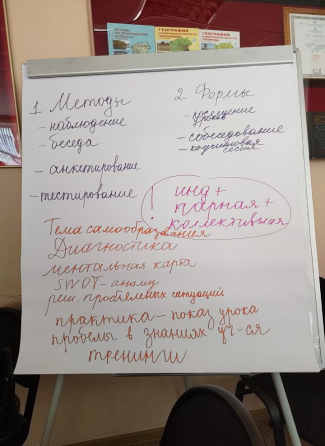 ГЕОГРАФИЯ
1 Методы
– наблюдение
– беседа
– анкетирование
– тестирование
2 Формы
– посещение урока
– собеседование
– коучинговая сессия
! инд +
парная +
колективная
Тема самообразования
Диагностика
ментальная карта
SWOT-анализ
реш. проблемных ситуаций
практика – показ урока
пробелы в знаниях уч-ся
тренинги